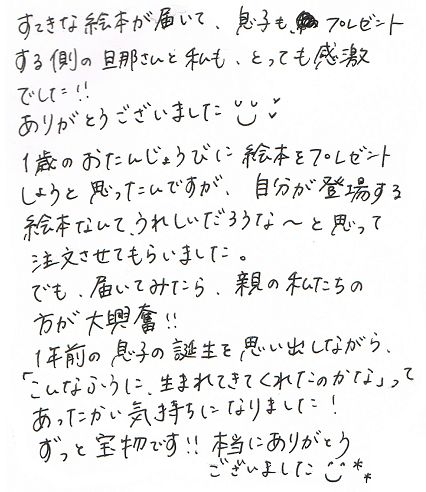 すてきな絵本が届いて、息子も、プレゼント
する側の旦那さんと私も、とっても感激
でした!!
ありがとうございました
1歳のおたんじょうびに絵本をプレゼント
しようと思ったんですが、自分が登場する
絵本なんて、うれしいだろうな〜と思って
注文させてもらいました。
でも、届いてみたら、親の私たちの
方が大興奮!!
1年前の息子の誕生を思い出しながら、
「こんなふうに、生まれてきてくれたのかな」って
あったかい気持ちになりました!
ずっと宝物です!!本当にありがとう
ございました